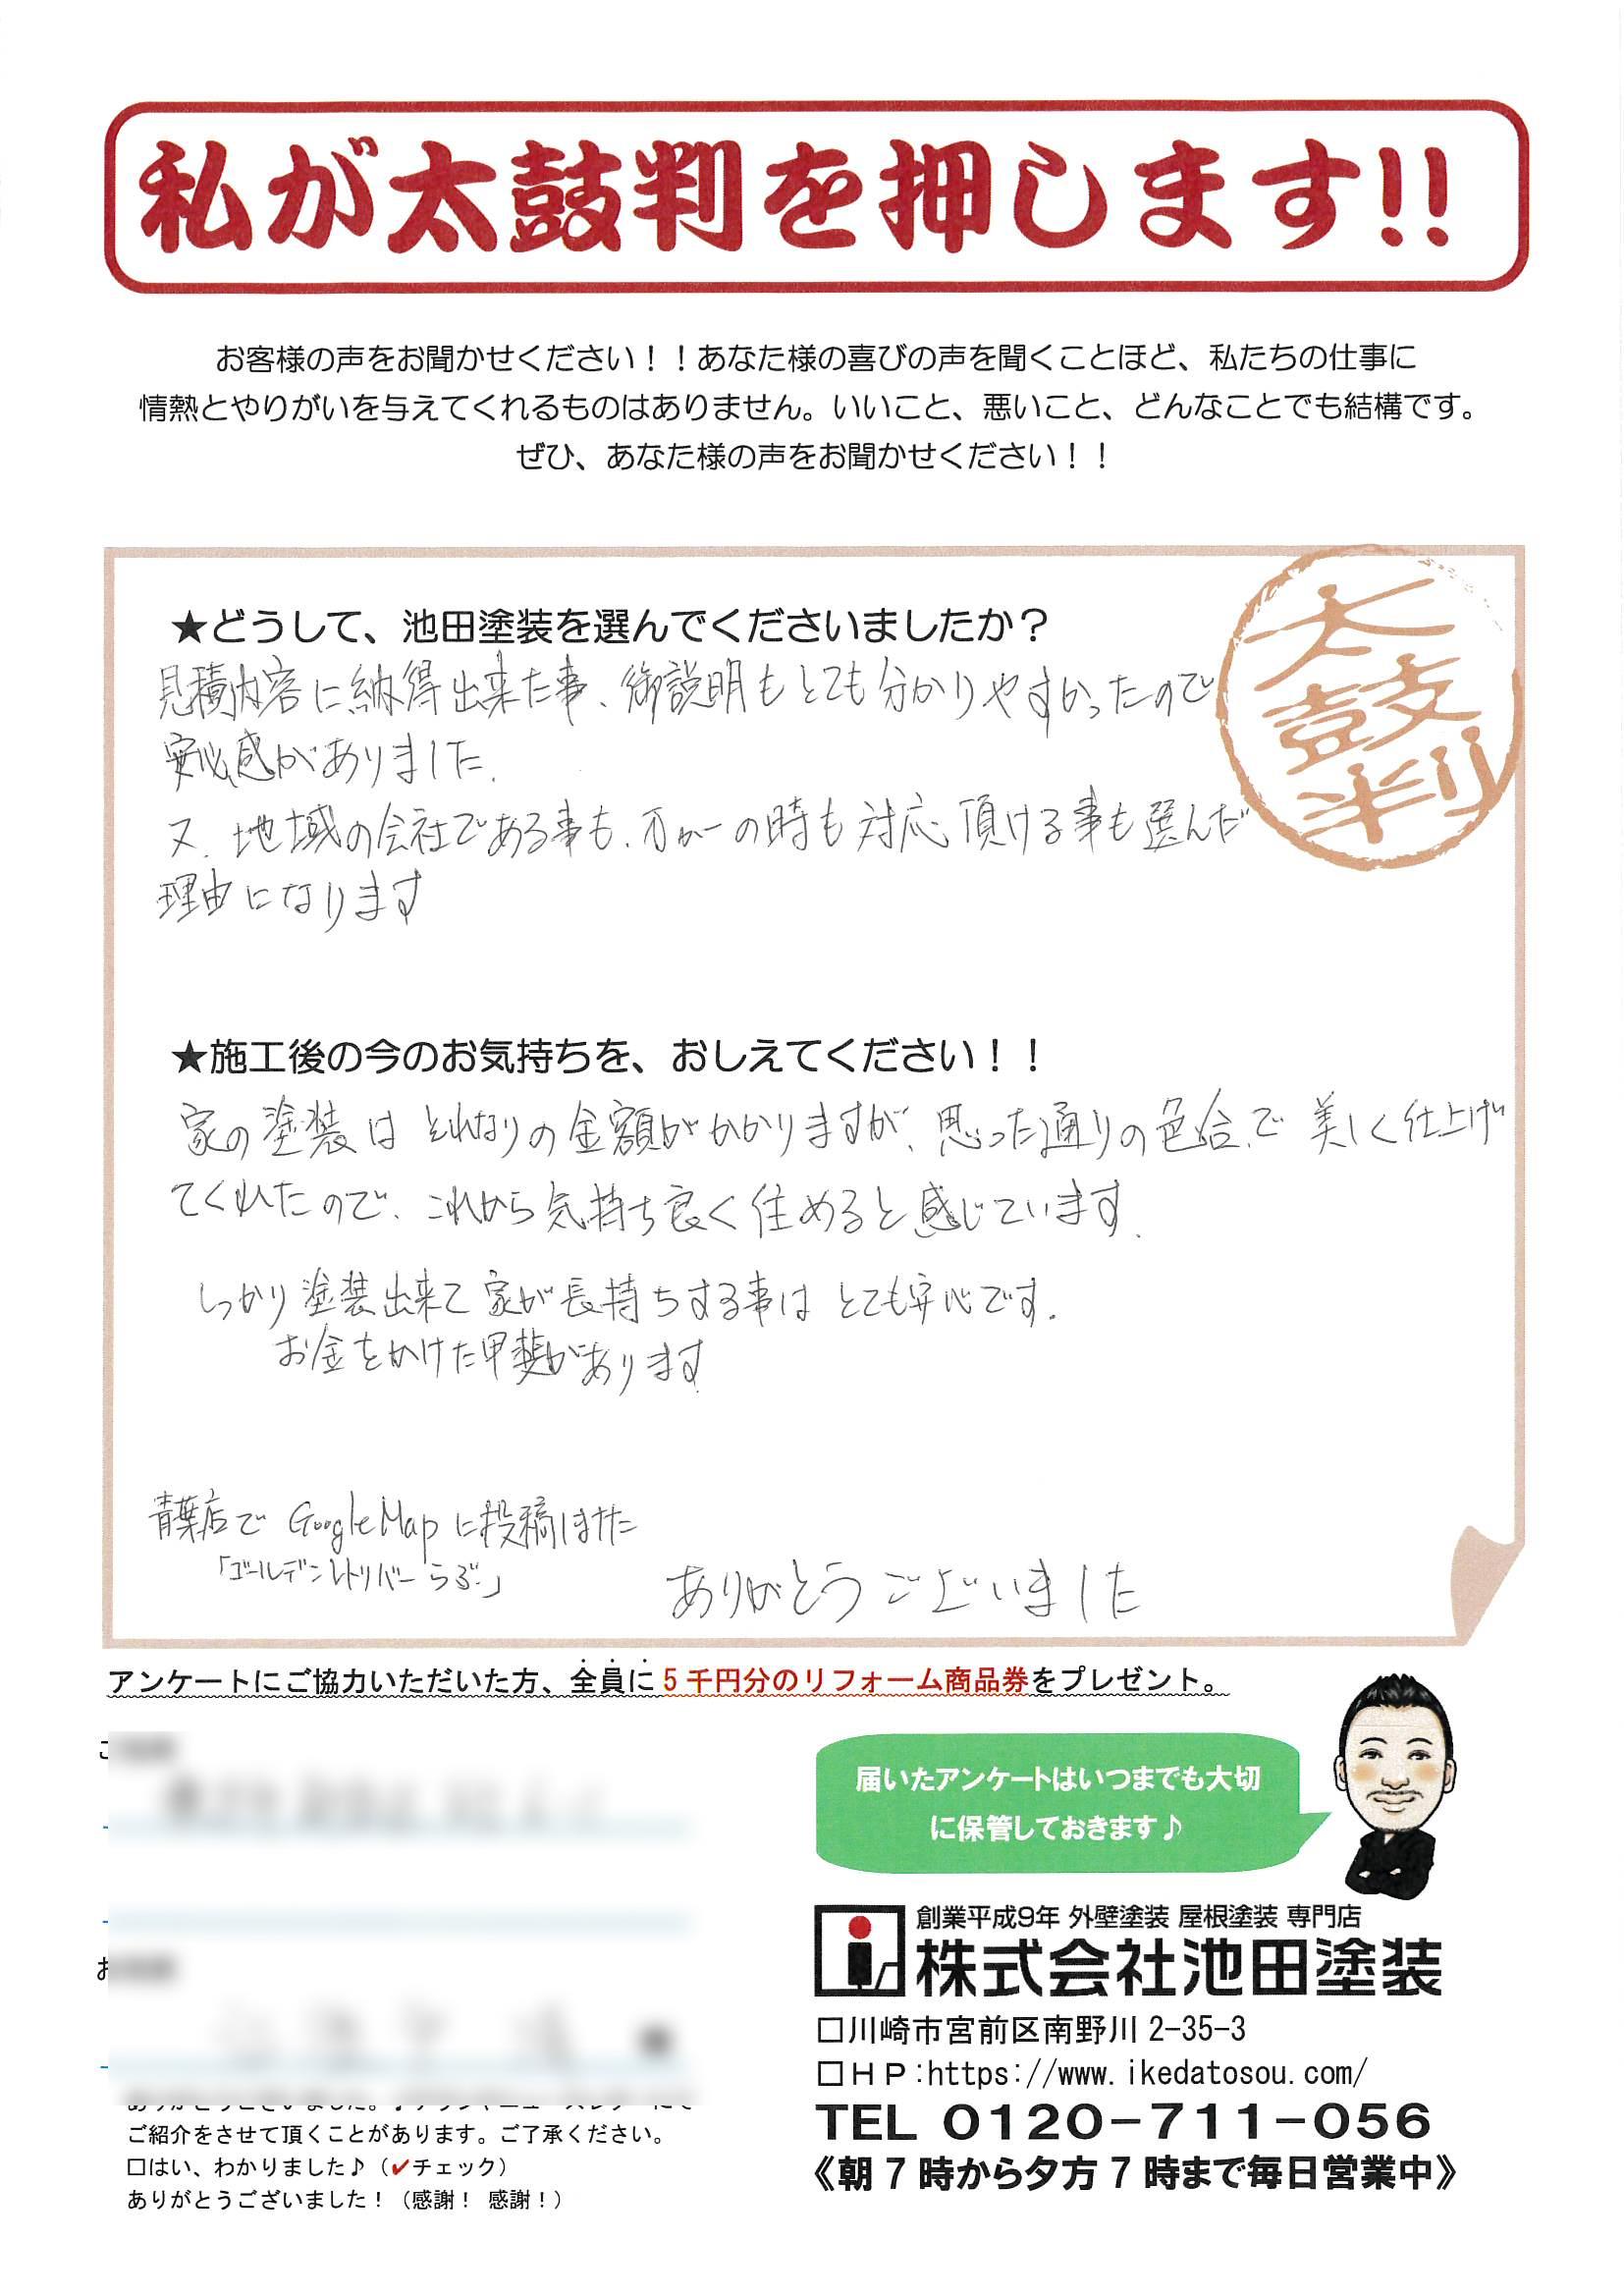 私が太鼓判を押します!!
お客様の声をお聞かせください！！あなた様の喜びの声を聞くことほど、私たちの仕事に
情熱とやりがいを与えてくれるものはありません。いいこと、悪いこと、どんなことでも結構です。
ぜひ、あなた様の声をお聞かせください！！
太鼓判
★どうして、池田塗装を選んでくださいましたか？
見積内容に納得出来た事、御説明もとても分かりやすかったので
安心感がありました.
又、地域の会社である事も、万が一の時も対応頂ける事も選んだ
理由になります
★施工後の今のお気持ちを、おしえてください！！
家の塗装は それなりの金額がかかりますが、思った通りの色合いで 美しく仕上げ
てくれたので、これから気持ち良く住めると感じています.
しっかり塗装出来て家が長持ちする事は とても安心です.
お金をかけた甲斐があります
青葉店で GoogleMapに投稿しました
「ゴールデンレトリバーらぶ」
ありがとうございました
アンケートにご協力いただいた方、全員に5千円分のリフォーム商品券をプレゼント。
届いたアンケートはいつまでも大切
に保管しておきます♪
創業平成9年 外壁塗装 屋根塗装 専門店
株式会社池田塗装
□川崎市宮前区南野川2-35-3
□ＨＰ:https://www.ikedatosou.com/
TEL 0120-711-056
《朝7時から夕方7時まで毎日営業中》
ご紹介をさせて頂くことがあります。ご了承ください。
□はい、わかりました♪（✔チェック）
ありがとうございました！（感謝！ 感謝！）